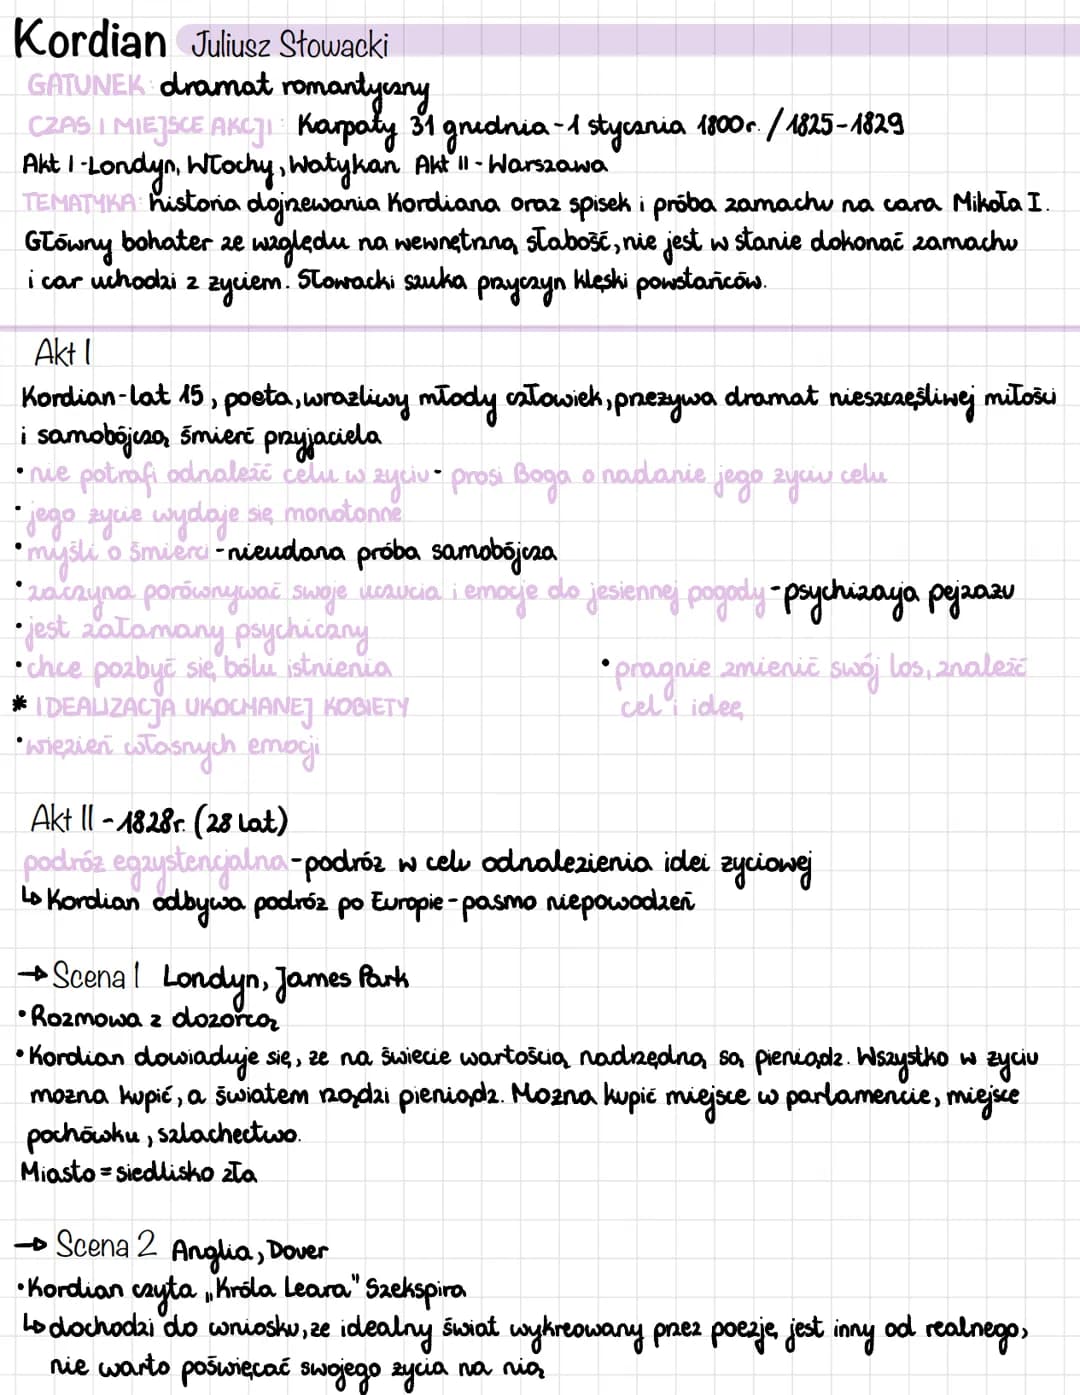 Kordian Juliusz Słowacki
GATUNEK: dramat romantyczny
CZAS I MIEJSCE AKCJI: Karpaty 31 grudnia - 1 stycznia 1800r. / 1825-1829
Akt I - Londyn, Włochy, Watykan Akt II - Warszawa
TEMATYKA: historia dojrzewania Kordiana oraz spisek i próba zamachu na cara Mikoła I.
Główny bohater ze względu na wewnętrzną słabość, nie jest w stanie dokonać zamachu
i car uchodzi z życiem. Słowacki szuka przyczyn klęski powstańców.
Akt I
Kordian - lat 15, poeta, wrażliwy młody człowiek, przeżywa dramat nieszczęśliwej miłości
i samobójczą śmierć przyjaciela
• nie potrafi odnaleźć celu w życiu - prosi Boga o nadanie jego życiu celu
• jego życie wydaje się monotonne
• myśli o śmierci - nieudana próba samobójcza
• zaczyna porównywać swoje uczucia i emocje do jesiennej pogody - psychizacja pejzażu
• jest załamany psychiczny
• chce pozbyć się bólu istnienia • pragnie zmienić swój los, znaleźć
* IDEALIZACJA UKOCHANEJ KOBIETY cel i ideę
• więzień własnych emocji
Akt II - 1828r. (28 lat)
podróż egzystencjalna - podróż w celu odnalezienia idei życiowej
↳ Kordian odbywa podróż po Europie - pasmo niepowodzeń
→ Scena 1 Londyn, James Park
• Rozmowa z dozorcą
• Kordian dowiaduje się, że na świecie wartością nadrzędną są pieniądz. Wszystko w życiu
można kupić, a światem rządzi pieniądz. Można kupić miejsce w parlamencie, miejsce
pochówku, szlachectwo.
Miasto = siedlisko zła
→ Scena 2 Anglia, Dover
• Kordian czyta „Króla Leara" Szekspira
↳ dochodzi do wniosku, że idealny świat wykreowany przez poezję jest inny od realnego,
nie warto poświęcać swojego życia na nią